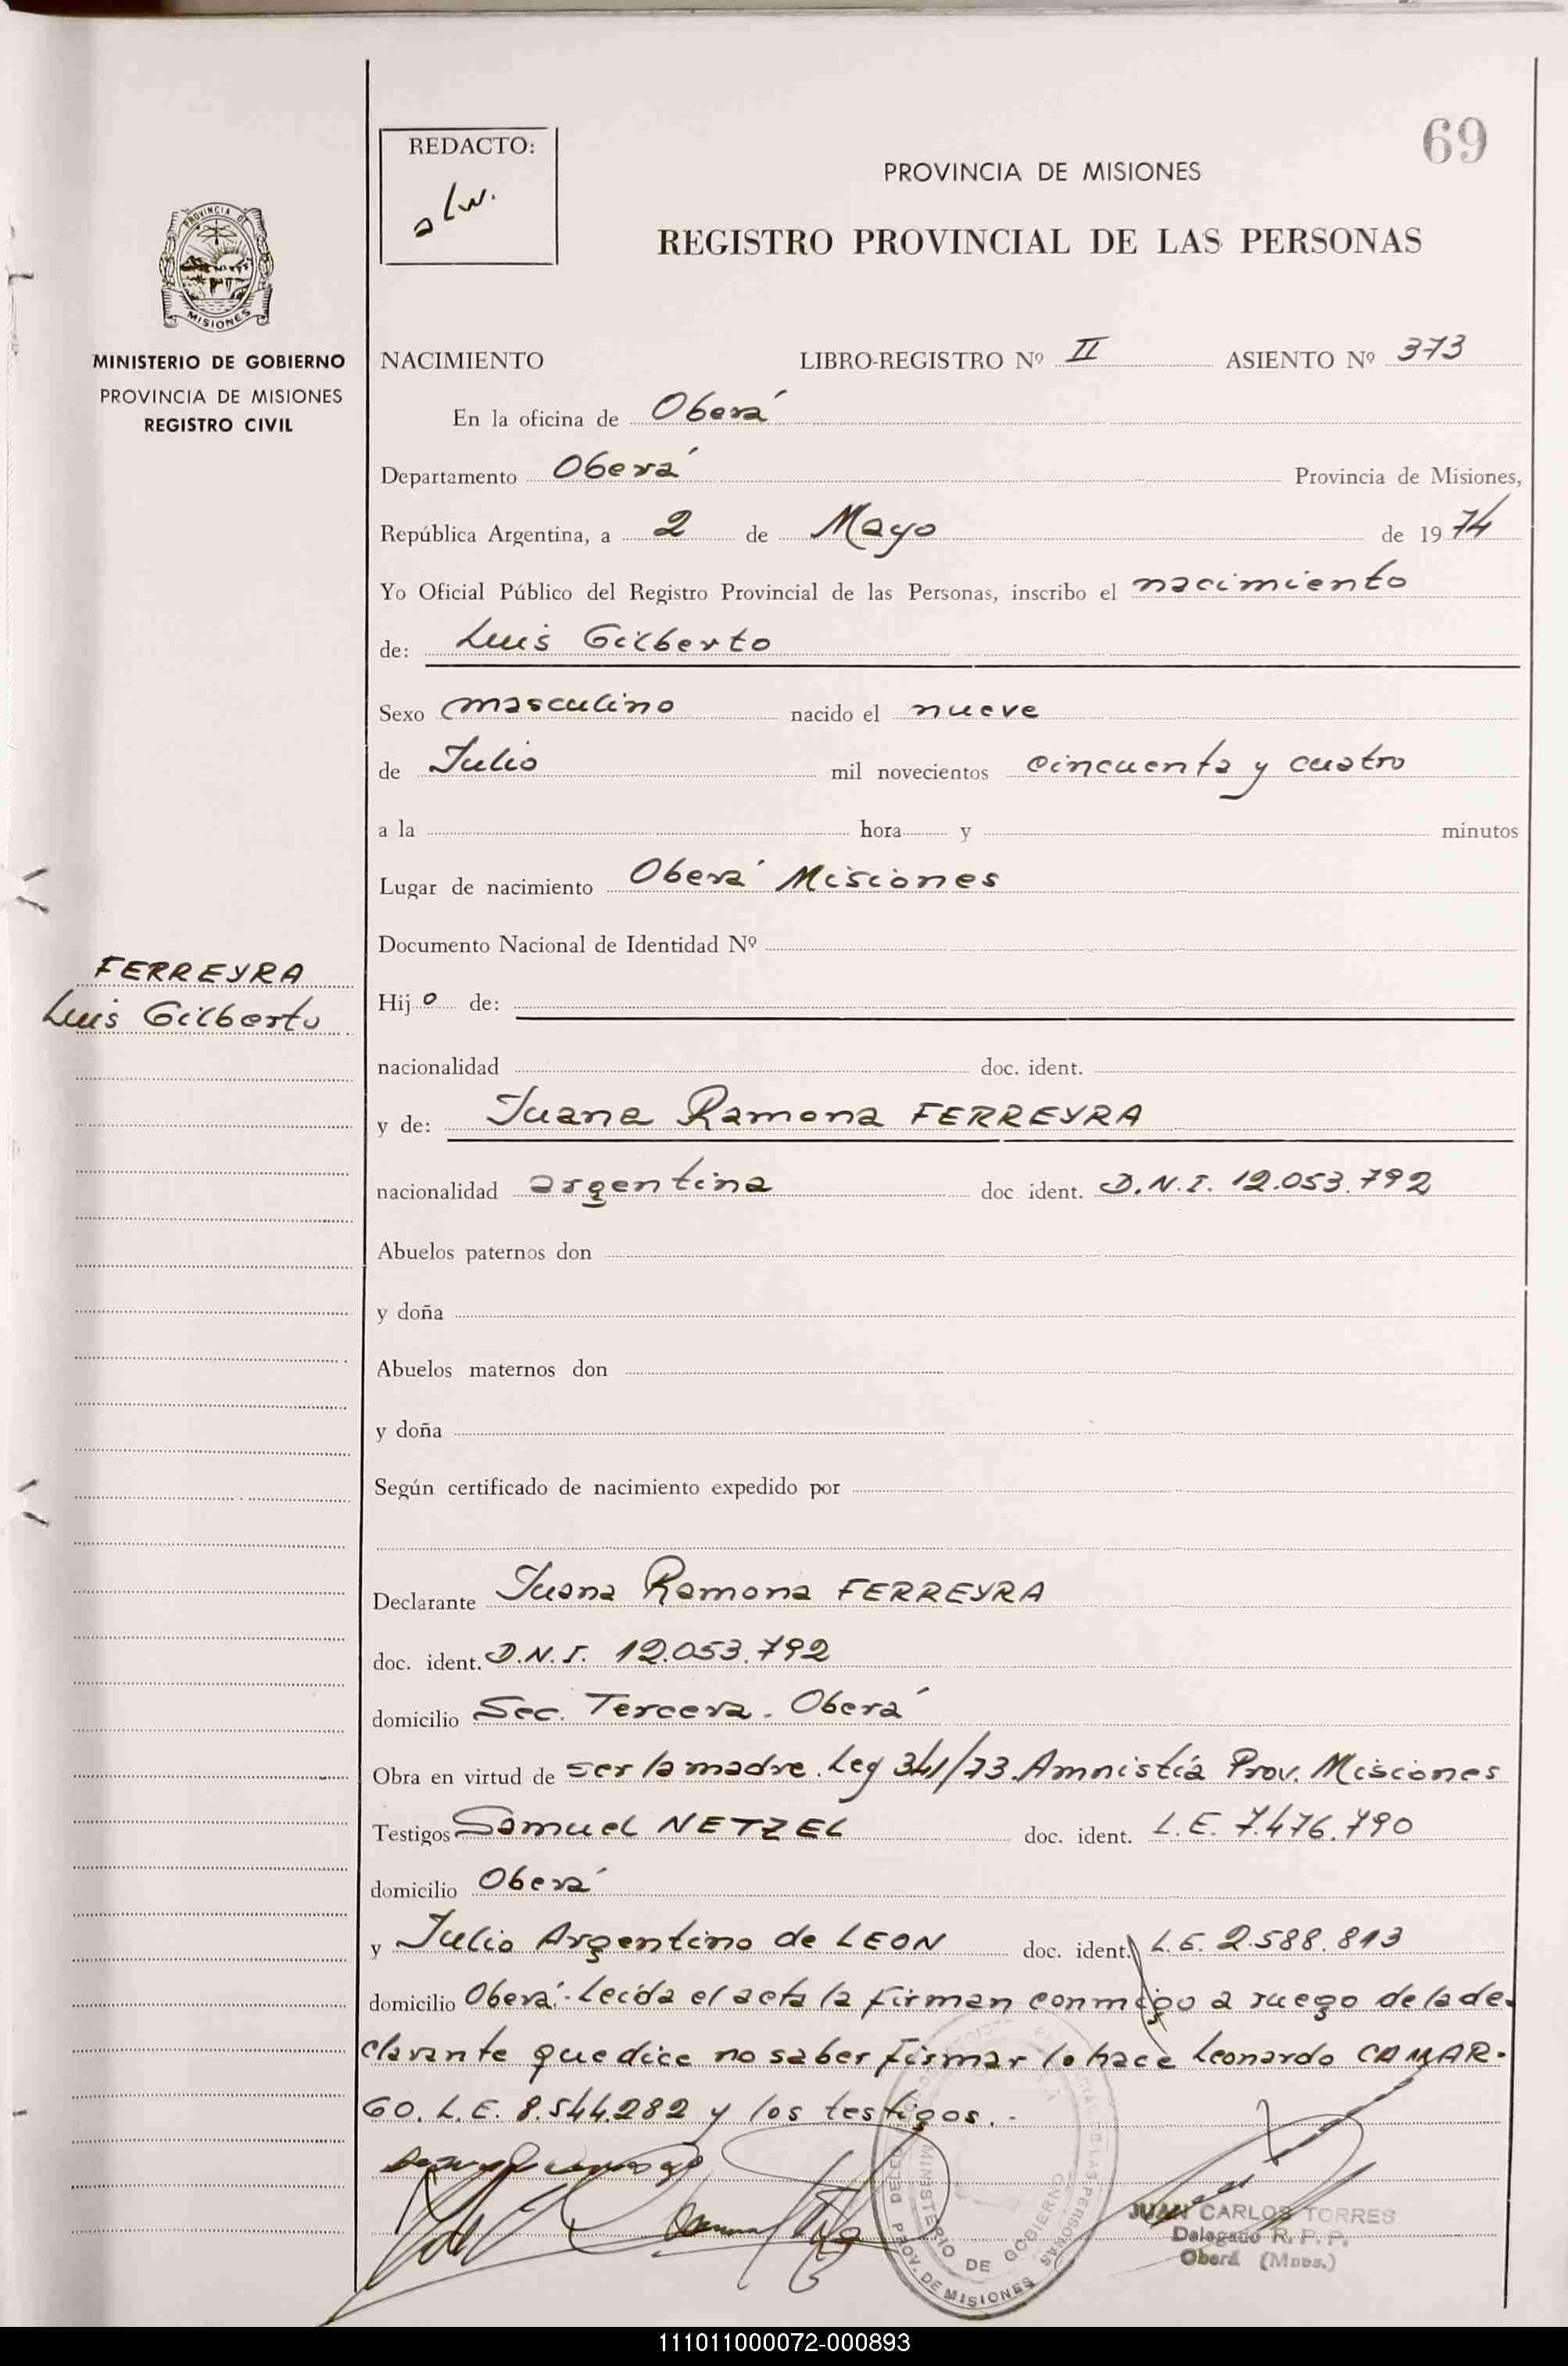 69
REDACTO:
alw.
PROVINCIA DE MISIONES
REGISTRO PROVINCIAL DE LAS PERSONAS
PROVINCIA DE
MISIONES
MINISTERIO DE GOBIERNO
PROVINCIA DE MISIONES
REGISTRO CIVIL
NACIMIENTO LIBRO-REGISTRO Nº II ASIENTO Nº 373
En la oficina de Oberá
Departamento Oberá Provincia de Misiones,
República Argentina, a 2 de Mayo de 1974
Yo Oficial Público del Registro Provincial de las Personas, inscribo el nacimiento
de: Luis Gilberto
Sexo masculino nacido el nueve
de Julio mil novecientos cincuenta y cuatro
a la hora y minutos
Lugar de nacimiento Oberá Misiones
Documento Nacional de Identidad Nº
FERREYRA
Luis Gilberto
Hijo de:
nacionalidad doc. ident.
y de: Juana Ramona FERREYRA
nacionalidad argentina doc ident. D.N.I. 12.053.792
Abuelos paternos don
y doña
Abuelos maternos don
y doña
Según certificado de nacimiento expedido por
Declarante Juana Ramona FERREYRA
doc. ident. D.N.I. 12.053.792
domicilio Sec. Tercera - Oberá
Obra en virtud de ser la madre. Ley 341/73. Amnistía Prov. Misiones
Testigos Samuel NETZEL doc. ident. L.E. 7.476.790
domicilio Oberá
y Julio Argentino de LEON doc. ident. L.E. 2.588.813
domicilio Oberá.- Leída el acta la firman conmigo a ruego de la de-
clarante que dice no saber firmar lo hace Leonardo CAMAR-
GO. L.E. 8.544.282 y los testigos.-
MINISTERIO DE GOBIERNO
PROV. DE MISIONES
JUAN CARLOS TORRES
Delegado R. P. P.
Oberá (Mnes.)
111011000072-000893